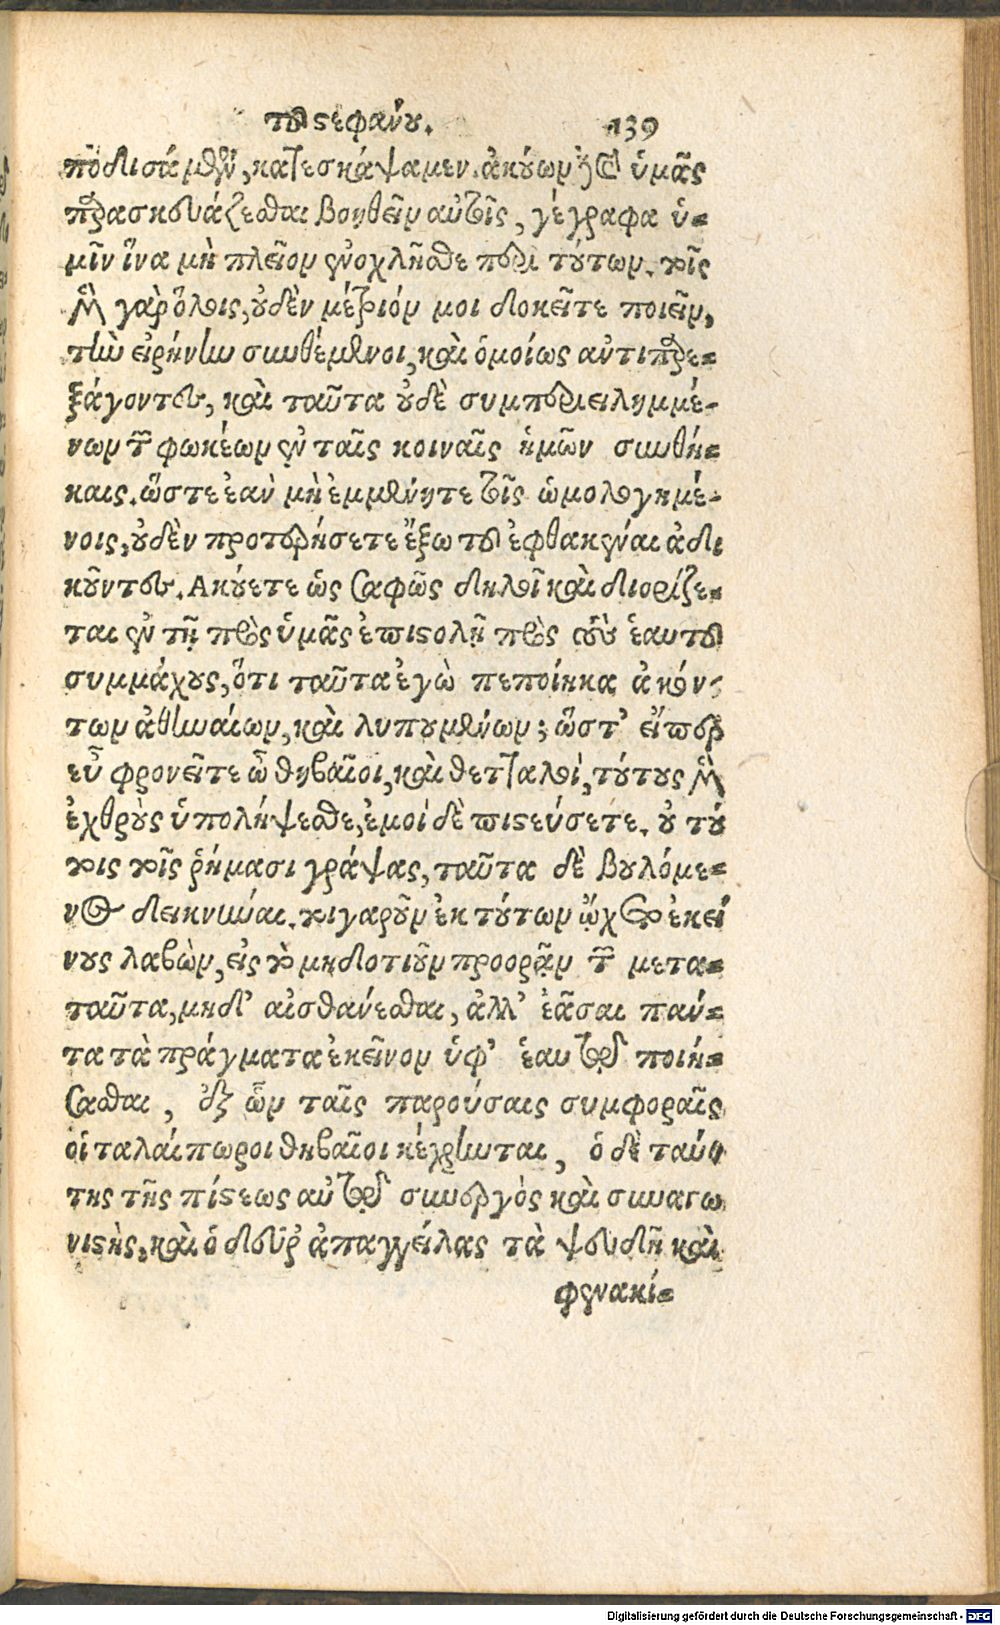 τοῦ στεφάνου. 139
ποδισάμενοι, κατεσκάψαμεν. ἀκούων δὲ καὶ ὑμᾶς
παρασκευάζεσθαι βοηθεῖν αὐτοῖς, γέγραφα ὑ-
μῖν ἵνα μὴ πλεῖον ἐνοχλῆσθε περὶ τούτων. τοῖς
μὲν γὰρ ὅλοις, οὐδὲν μέτριόν μοι δοκεῖτε ποιεῖν,
τὴν εἰρήνην συνθέμενοι, καὶ ὁμοίως ἀντιπαρε-
ξάγοντες, καὶ ταῦτα οὐδὲ συμπεριειλημμέ-
νων τῶν φωκέων ἐν ταῖς κοιναῖς ἡμῶν συνθή-
καις. ὥστε ἐὰν μὴ ἐμμένητε τοῖς ὡμολογημέ-
νοις, οὐδὲν προτερήσετε ἔξω τοῦ ἐφθακέναι ἀδι
κοῦντες. Ἀκούετε ὡς σαφῶς δηλοῖ καὶ διορίζε-
ται ἐν τῇ πρὸς ὑμᾶς ἐπιστολῇ πρὸς τοὺς ἑαυτοῦ
συμμάχους, ὅτι ταῦτα ἐγὼ πεποίηκα ἀκόν-
των ἀθηναίων, καὶ λυπουμένων; ὥστ’ εἴπερ
εὖ φρονεῖτε ὦ θηβαῖοι, καὶ θετταλοί, τούτους μὲν
ἐχθροὺς ὑπολήψεσθε, ἐμοὶ δὲ πιστεύσετε. οὐ τού
τοις τοῖς ῥήμασι γράψας, ταῦτα δὲ βουλόμε-
νος δεικνύναι. τοιγαροῦν ἐκ τούτων ᾤχετο ἐκεί
νους λαβὼν, εἰς τὸ μηδοτιοῦν προορᾷν τῶν μετα-
ταῦτα, μηδ’ αἰσθάνεσθαι, ἀλλ’ ἐᾶσαι πάν-
τα τὰ πράγματα ἐκεῖνον ὑφ’ ἑαυτῷ ποιή-
σασθαι, ἐξ ὧν ταῖς παρούσαις συμφοραῖς
οἱ ταλαίπωροι θηβαῖοι κέχρηνται, ὁ δὲ ταύ-
της τῆς πίστεως αὐτῷ συνεργὸς καὶ συναγω
νιστὴς, καὶ ὁ δεῦρ’ ἀπαγγείλας τὰ ψευδῆ καὶ
φενακί-
Digitalisierung gefördert durch die Deutsche Forschungsgemeinschaft - DFG